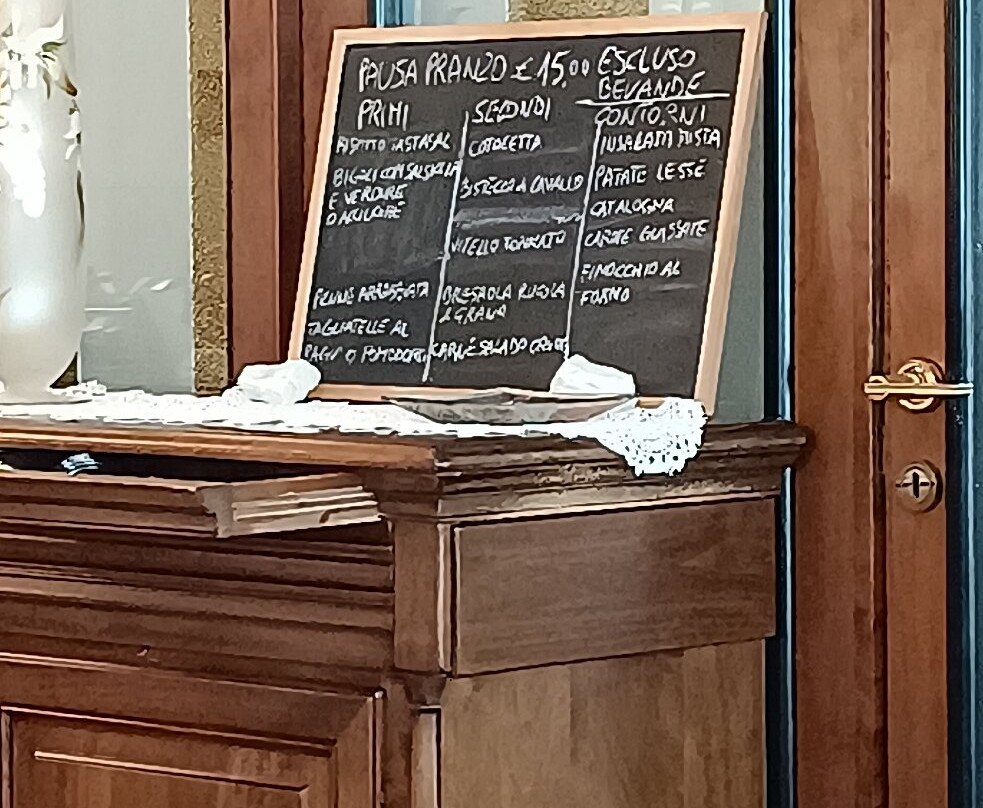 PAUSA PRANZO € 15.00 ESCLUSO
BEVANDE
PRIMI
RISOTTO TASTASAL
BIGOLI CON SALSICCIA
E VERDURE
O
PENNE ARRABBIATA
TAGLIATELLE AL
RAGU O POMODORO
SECONDI
COTOLETTA
BISTECCA A CAVALLO
VITELLO TONNATO
BRESAOLA RUGOLA
E GRANA
CARNE SALADA
CONTORNI
INSALATA MISTA
PATATE LESSE
CATALOGNA
CAROTE GLASSATE
FINOCCHIO AL
FORNO